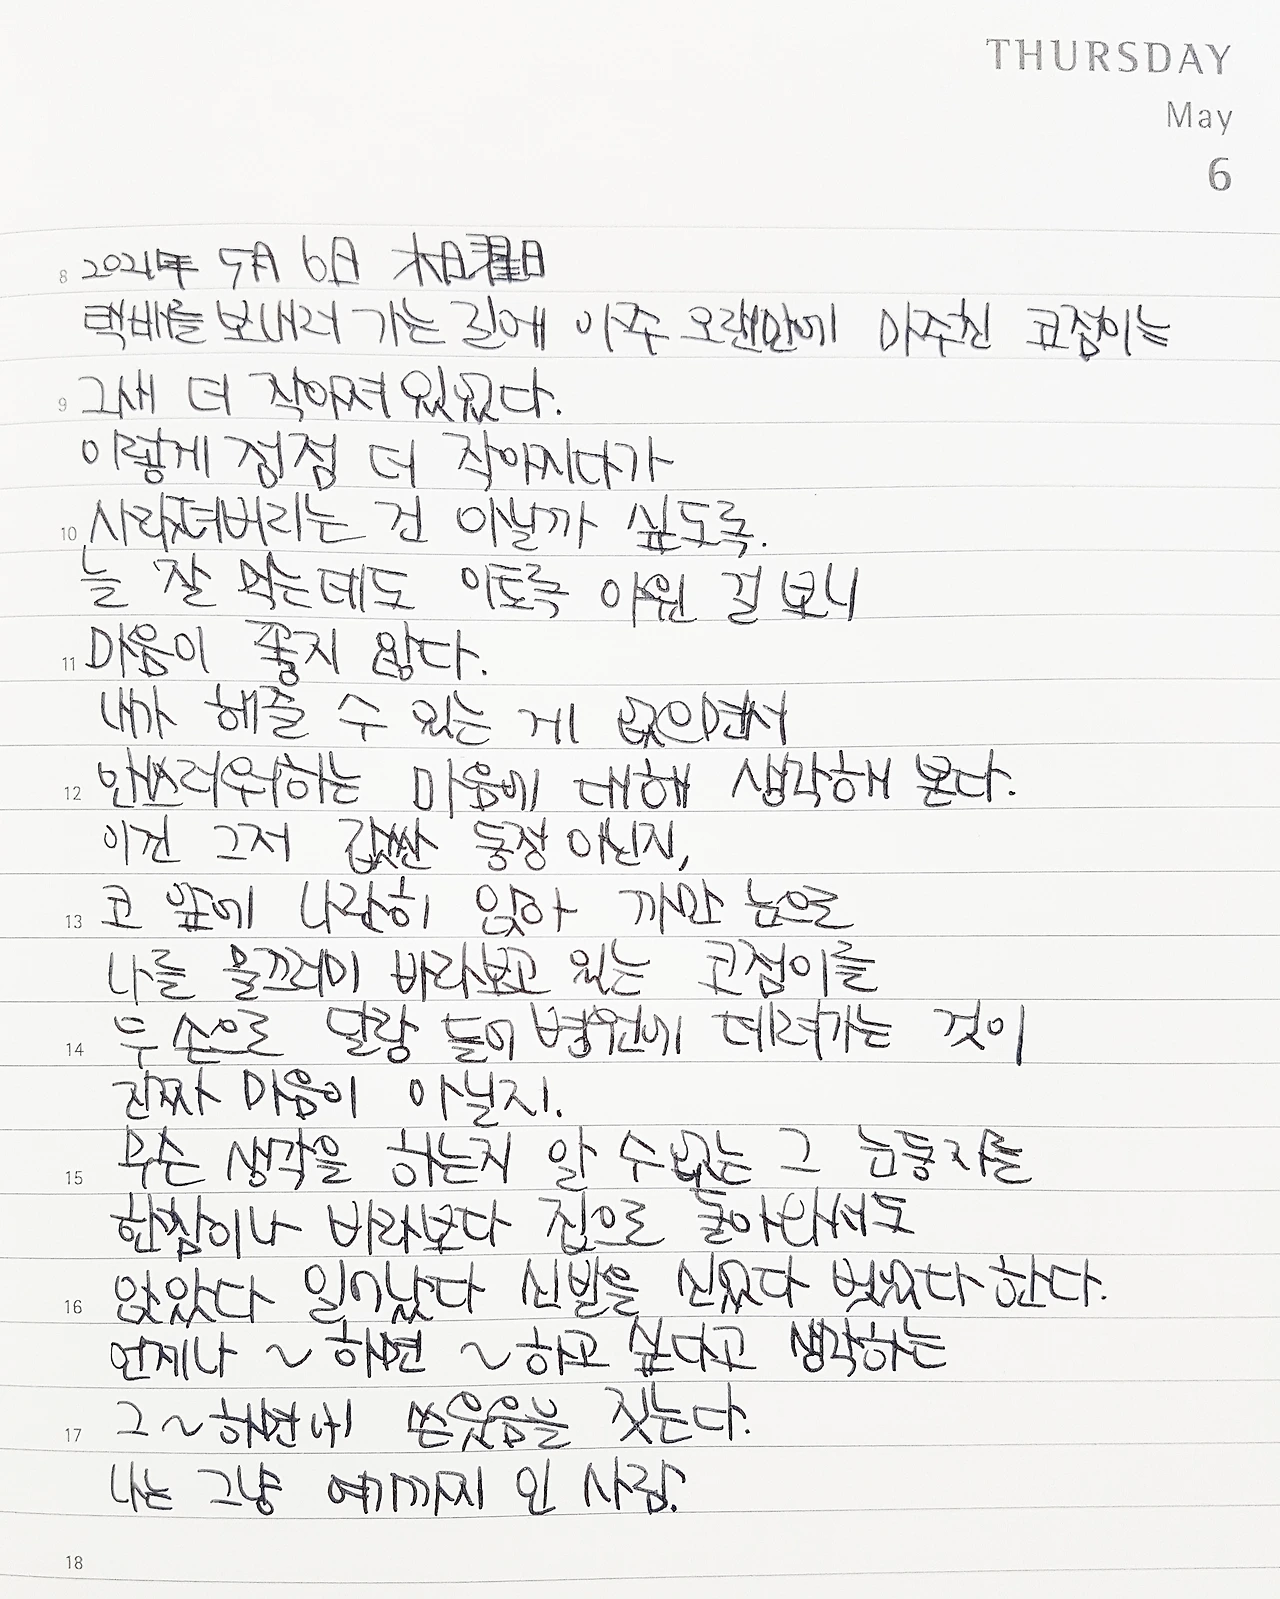 THURSDAY
May
6
8 2021年 5月 6日 木曜日
택배를 보내러 가는 길에 아주 오랜만에 마주친 코점이는
9 그새 더 작아져 있었다.
이렇게 점점 더 작아지다가
10 사라져버리는 건 아닐까 싶도록.
늘 잘 먹는데도 이토록 야윈 걸 보니
11 마음이 좋지 않다.
내가 해줄 수 있는 게 없으면서
12 안쓰러워하는 마음에 대해 생각해 본다.
이건 그저 값싼 동정 아닌지,
13 코 앞에 나란히 앉아 까만 눈으로
나를 물끄러미 바라보고 있는 코점이를
14 두 손으로 달랑 들어 병원에 데려가는 것이
진짜 마음이 아닐지.
15 무슨 생각을 하는지 알 수 없는 그 눈동자를
한참이나 바라보다 집으로 돌아와서도
16 앉았다 일어났다 신발을 신었다 벗었다 한다.
언제나 ~하면 ~하고 싶다고 생각하는
17 그 ~하면에 쓴웃음을 짓는다.
나는 그냥 여기까지 인 사람.
18